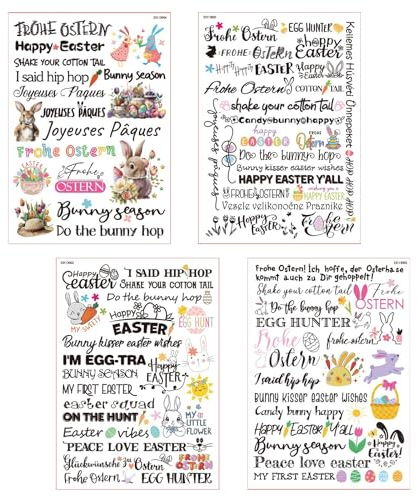 FRÖHE OSTERN
Happy Easter
SHAKE YOUR COTTON TAIL
I said hip hop
Bunny season
Joyeuses Paques
JOYEUSES PÂQUES
Joyeuses Pâques
Frohe Ostern
Frohe
OSTERN
Bunny season
Do the bunny hop
Frohe Ostern
EGG HUNTER
FROHE Ostern
happy
Easter
Hip Hip
EASTER
Happy Easter
Frohe Ostern
COTTON TAIL
shake your cotton tail
Candy bunny happy
happy
EASTER
FROHE
Ostern
Do the bunny hop
Bunny kisser easter wishes
HAPPY EASTER Y'ALL
FROHE OSTERN
wishing you a
HAPPY EASTER
Vesele velikonočne Praznike
Happy
EASTER
Frohe
Ostern
joyeuses pâques
Kellemes Húsvéti Ünnepeket
HIP HIP HOP
Happy
easter
I SAID HIP HOP
SHAKE YOUR COTTON TAIL
Do the bunny hop
MY SWEET
Happy
EASTER
EGG
HUNT
Bunny kisser easter wishes
I'M EGG-TRA
BUNNY SEASON
Happy
EASTER
MY FIRST EASTER
easter squad
ON THE HUNT
MY
LITTLE
FLOWER
Easter vibes
PEACE LOVE EASTER
Glückwünsche zu Ostern
FROHE
OSTERN
Frohe Ostern
EGG HUNTER
Frohe Ostern! Ich hoffe, der Osterhase
kommt auch zu Dir gehoppelt!
Shake your cotton tail
Frohe
OSTERN
Do the bunny hop
EGG HUNTER
Frohe
Ostern
frohe ostern
I said hip hop
Bunny kisser easter wishes
Candy bunny happy
HAPPY EASTER Y'ALL
Bunny season
Happy
Easter!
Peace love easter
MY FIRST EASTER